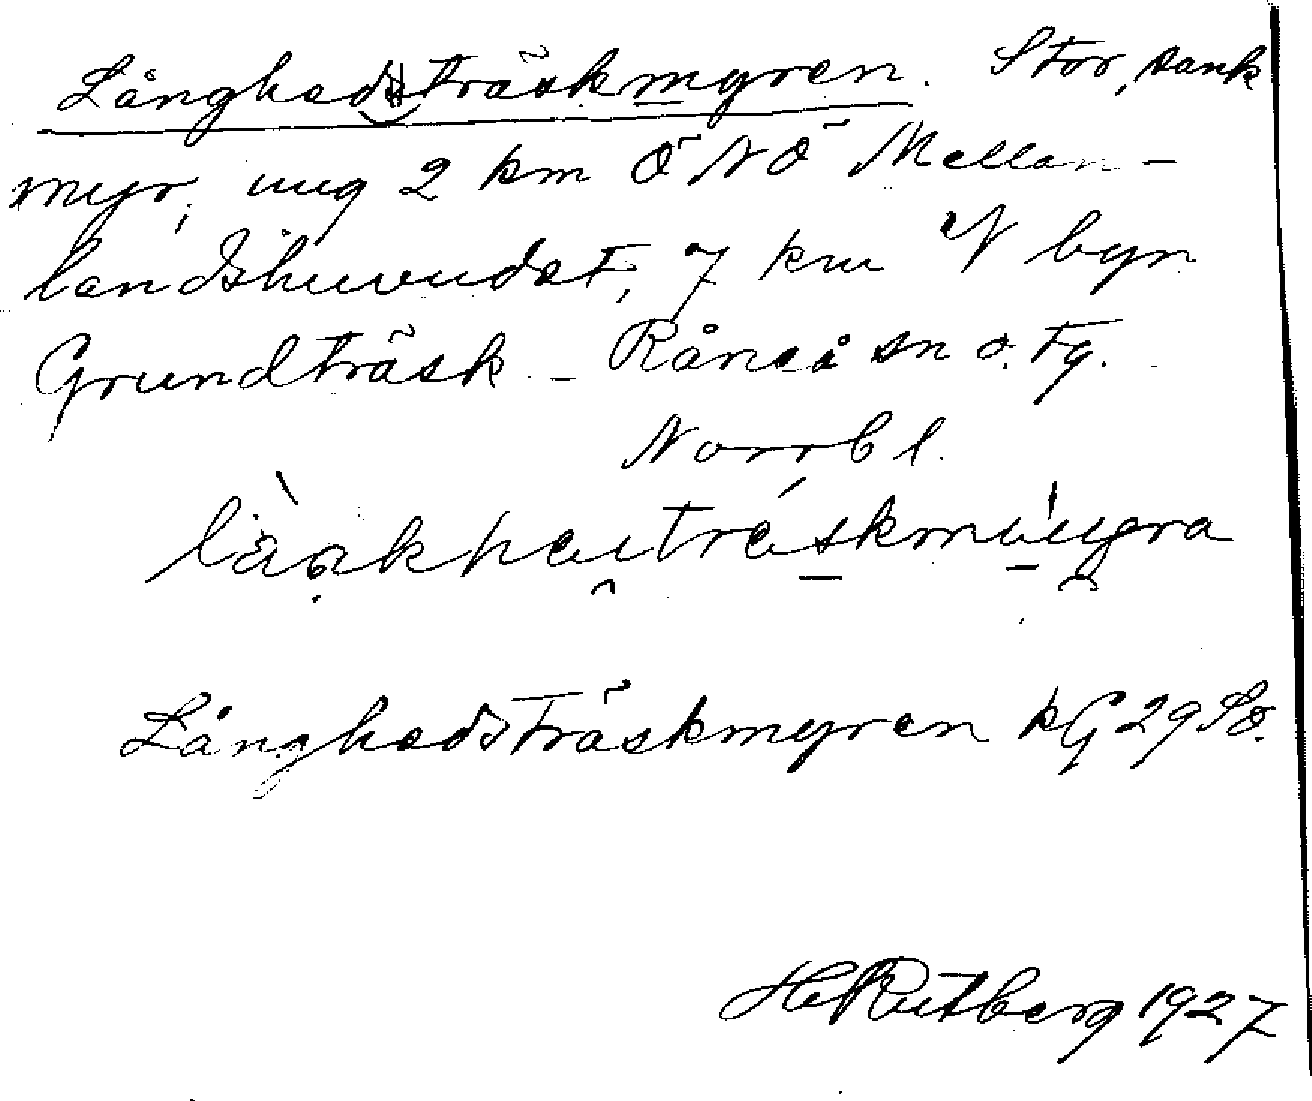 Långhedsträskmyren. Stor, sank
myr, ung 2 km ÖNÖ Mellan-
landshuvudet, 7 km N byn
Grundträsk - Råneå sn o. tg.
Norrb l.
Långhedsträskmyren kG 29 Sö.
H Rutberg 1927